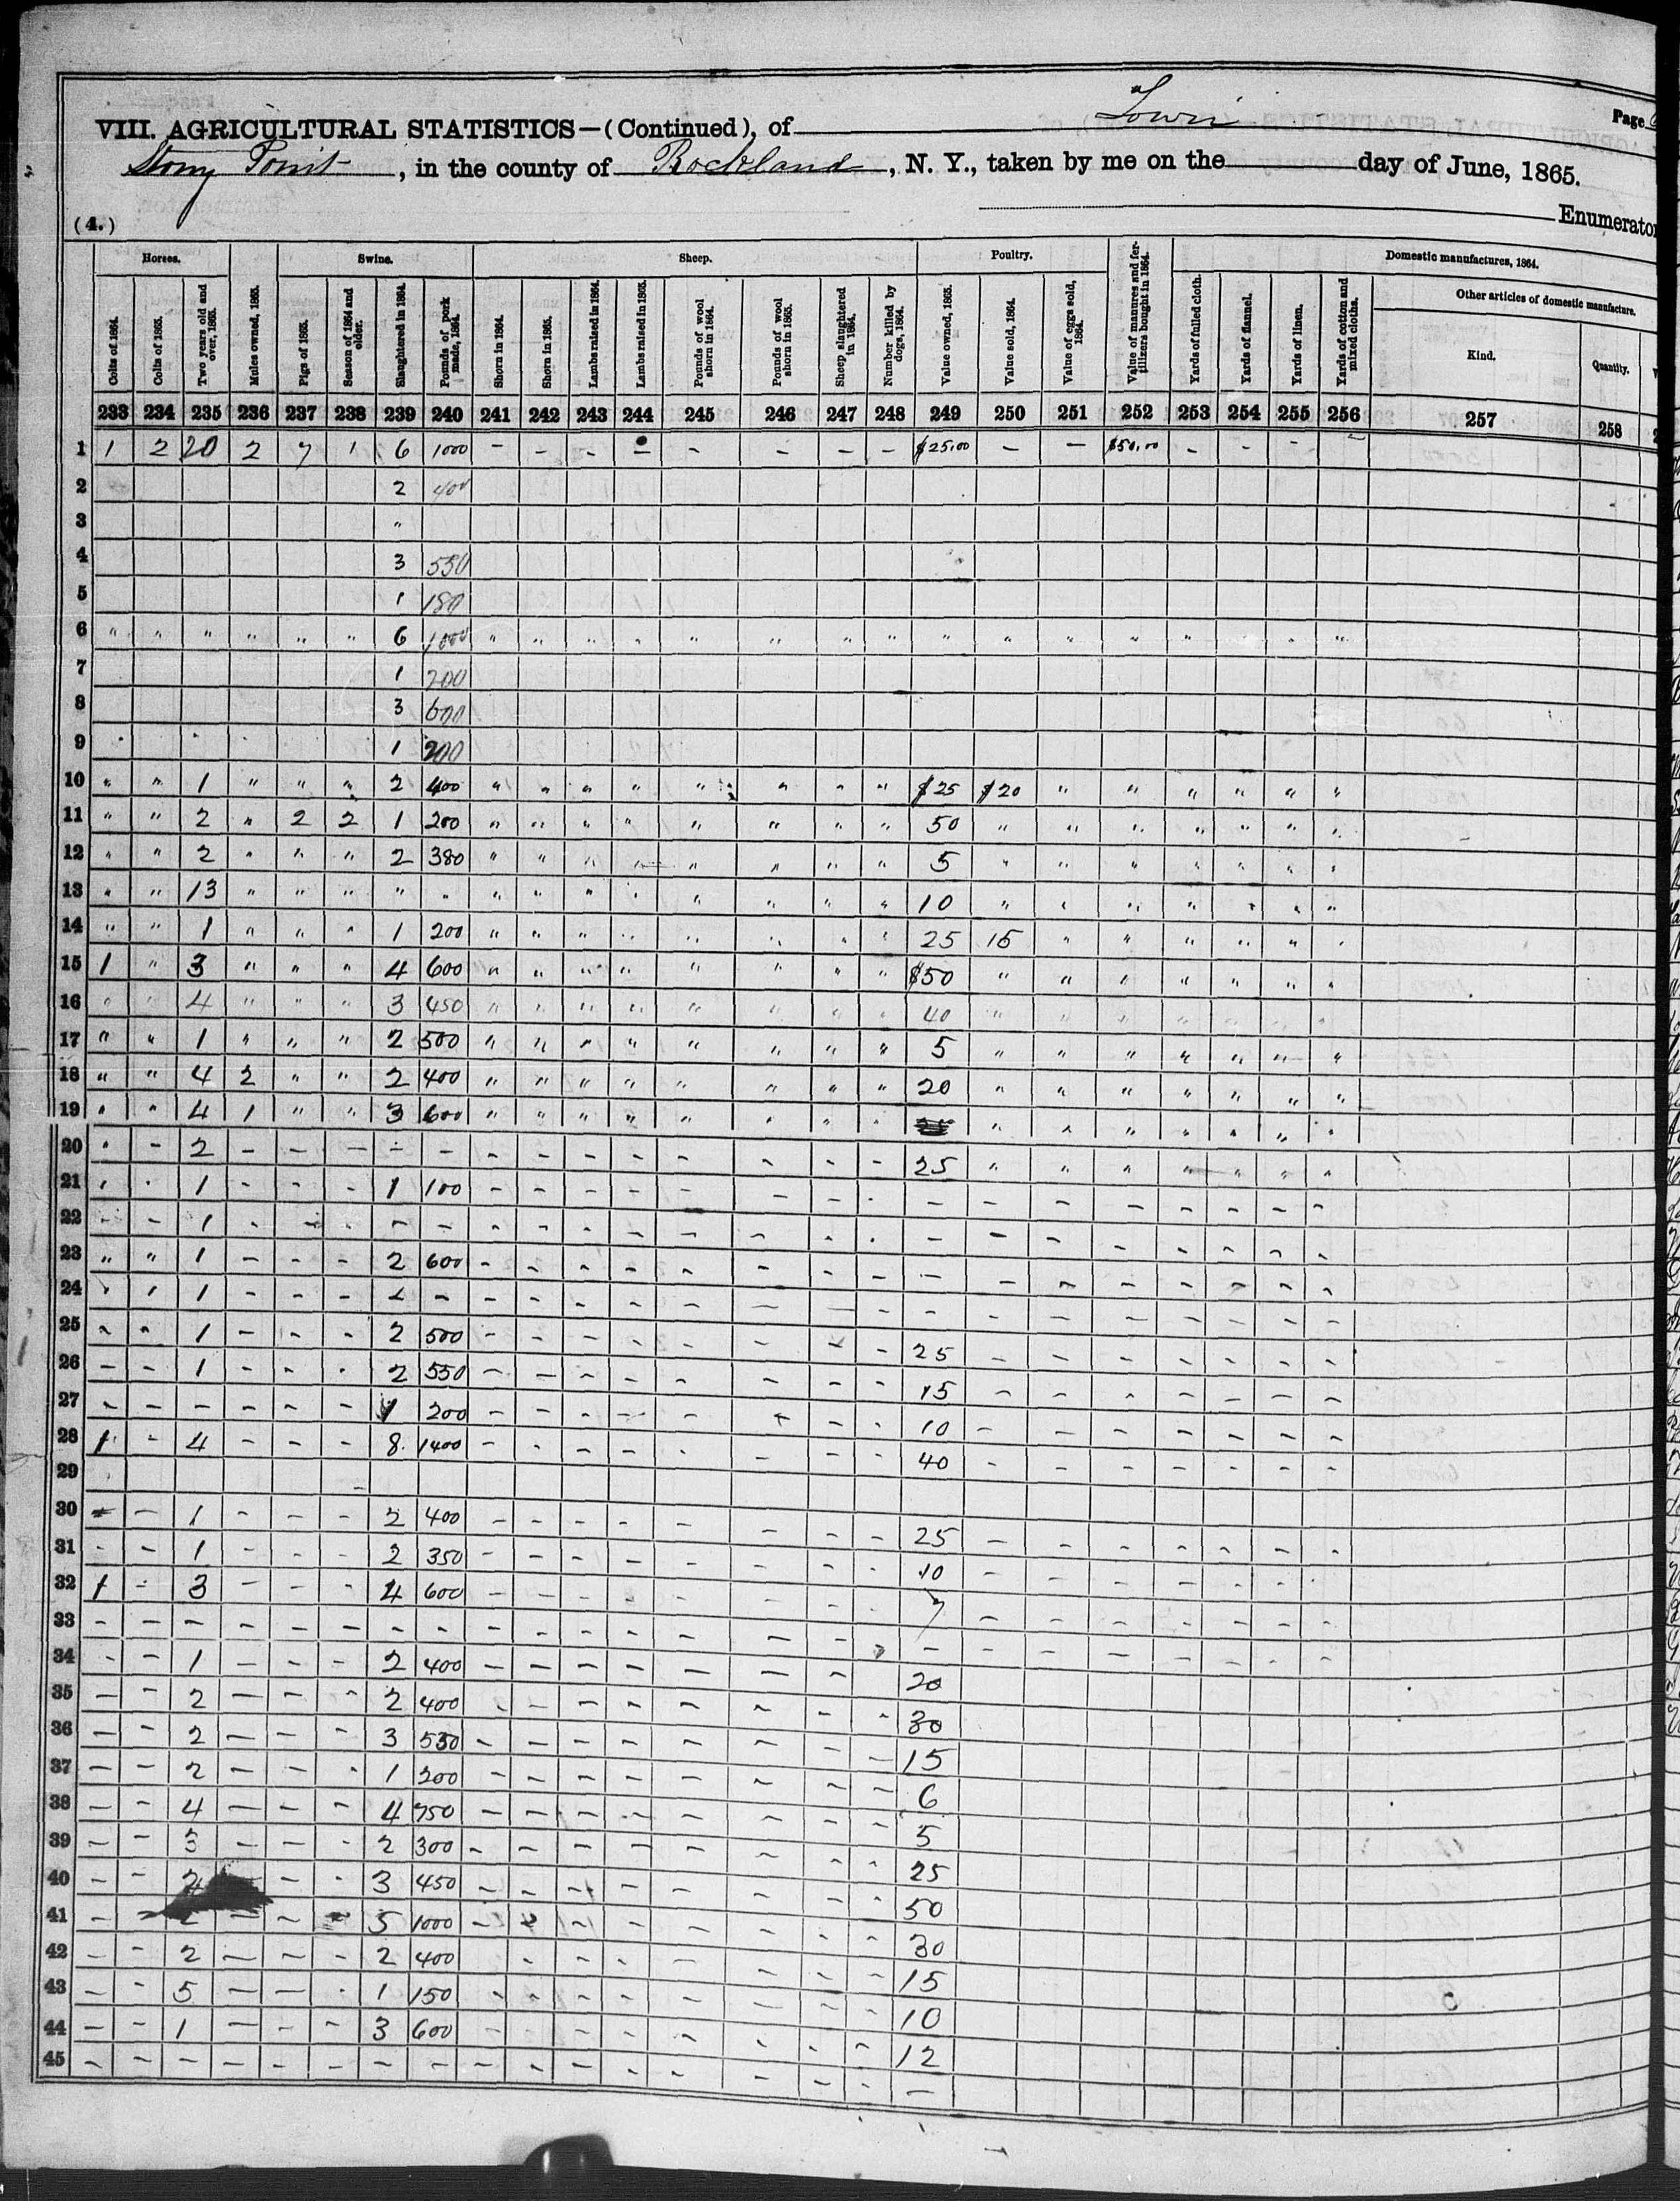 VIII. AGRICULTURAL STATISTICS—(Continued), of Town Page
Stony Point, in the county of Rockland, N. Y., taken by me on the day of June, 1865.
(4.) Enumerator
Horses. Swine. Sheep. Poultry. Domestic manufactures, 1864.
Other articles of domestic manufacture.
Colts of 1864. Colts of 1865. Two years old and over, 1865. Mules owned, 1865. Pigs of 1865. Season of 1864 and older. Slaughtered in 1864. Pounds of pork made, 1864. Shorn in 1864. Shorn in 1865. Lambs raised in 1864. Lambs raised in 1865. Pounds of wool shorn in 1864. Pounds of wool shorn in 1865. Sheep slaughtered in 1864. Number killed by dogs, 1864. Value owned, 1865. Value sold, 1864. Value of eggs sold, 1864. Value of manures and fertilizers bought in 1864. Yards of fulled cloth. Yards of flannel. Yards of linen. Yards of cotton and mixed cloths. Kind. Quantity.
233 234 235 236 237 238 239 240 241 242 243 244 245 246 247 248 249 250 251 252 253 254 255 256 257 258
1 1 2 20 2 7 1 6 1000 - - - - - - - - $25.00 - - $50.00 - - - -
2 2 400
3 "
4 3 550
5 1 180
6 " " " " " " 6 1000 " " " " " " " " " " " " " " "
7 1 200
8 3 600
9 1 200
10 " " 1 " " " 2 400 " " " " " " " " $25 $20 " " " " " "
11 " " 2 " 2 2 1 200 " " " " " " " " 50 " " " " " " "
12 " " 2 " " " 2 380 " " " " " " " " 5 " " " " " " "
13 " " 13 " " " " " " " " " " " " " 10 " " " " " " "
14 " " 1 " " " 1 200 " " " " " " " " 25 15 " " " " " "
15 1 " 3 " " " 4 600 " " " " " " " " $50 " " " " " " "
16 " " 4 " " " 3 450 " " " " " " " " 40 " " " " " " "
17 " " 1 " " " 2 500 " " " " " " " " 5 " " " " " " "
18 " " 4 2 " " 2 400 " " " " " " " " 20 " " " " " " "
19 " " 4 1 " " 3 600 " " " " " " " " " " " " " " "
20 " - 2 - - - - - - - - - - - - - 25 " " " " " " "
21 " " 1 - - - 1 100 - - - - - - - - - - - - - - - -
22 - - 1 - - - - - - - - - - - - - - - - - - - - -
23 " " 1 - - - 2 600 - - - - - - - - - - - - - - - -
24 1 - - - - - - - - - - - - - - - - - - - - -
25 " " 1 - - - 2 500 - - - - - - - - 25 - - - - - - -
26 - - 1 - - - 2 550 - - - - - - - - 15 - - - - - - -
27 - - - - - - 1 200 - - - - - - - - 10 - - - - - - -
28 1 - 4 - - - 8 1400 - - - - - - - - 40 - - - - - - -
29
30 - - 1 - - - 2 400 - - - - - - - - 25 - - - - - - -
31 - - 1 - - - 2 350 - - - - - - - - 10 - - - - - - -
32 1 - 3 - - - 4 600 - - - - - - - - 7 - - - - - - -
33 - - - - - - - - - - - - - - - - - - - - - - - -
34 - - 1 - - - 2 400 - - - - - - - 20
35 - - 2 - - - 2 400 - - - - - - - - 30
36 - - 2 - - - 3 530 - - - - - - - - 15
37 - - 2 - - - 1 200 - - - - - - - - 6
38 - - 4 - - - 4 750 - - - - - - - - 5
39 - - 3 - - - 2 300 - - - - - - - - 25
40 - - 2 - - 3 450 - - - - - - - - 50
41 - - 2 - - - 5 1000 - - - - - - - - 30
42 - - 2 - - - 2 400 - - - - - - - 15
43 - - 5 - - - 1 150 - - - - - - - - 10
44 - - 1 - - - 3 600 - - - - - - - - 12
45 - - - - - - - - - - - - - - - - -